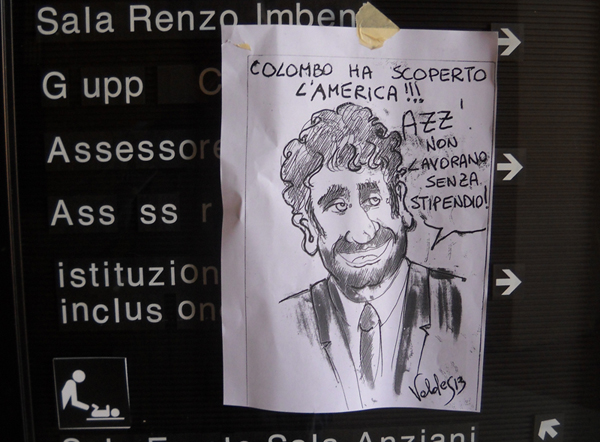 Sala Renzo Imben
G upp C
Assessore
Ass ss r
istituzion
inclus on
COLOMBO HA SCOPERTO
L'AMERICA!!!
AZZ'!
NON
LAVORANO
SENZA
STIPENDIO!
Valdes 13
Sala Anziani